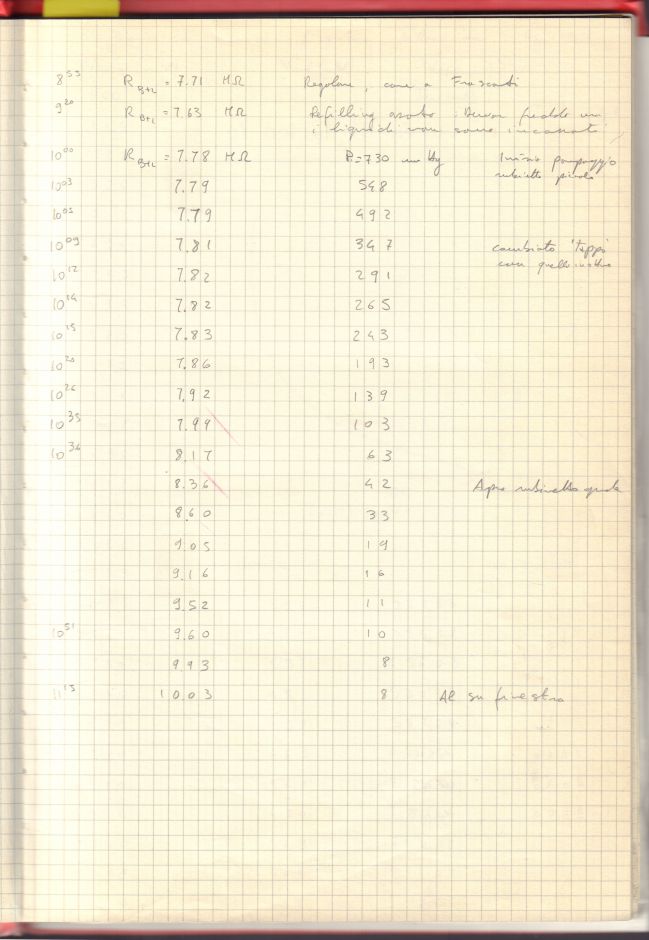 8⁵³ R B+L = 7.71 MΩ Regolare, come a Frascati
9²⁰ R B+L = 7.63 MΩ Refilling azoto: freddo
i liquidi non sono incasinati
10⁰⁰ R B+L = 7.78 MΩ P=730 mm Hg Inizio pompaggio
rubinetto piccolo
10⁰³ 7.79 548
10⁰⁵ 7.79 492
10⁰⁹ 7.81 347 cambiato 'tappo'
con quello
10¹² 7.82 291
10¹⁴ 7.82 265
10¹⁵ 7.83 243
10²⁰ 7.86 193
10²⁶ 7.92 139
10³⁵ 7.99 103
10³⁶ 8.17 63
8.36 42 Apro rubinetto
8.60 33
9.05 19
9.16 16
9.52 11
10⁵¹ 9.60 10
9.93 8
11¹⁵ 10.03 8 Al su finestra